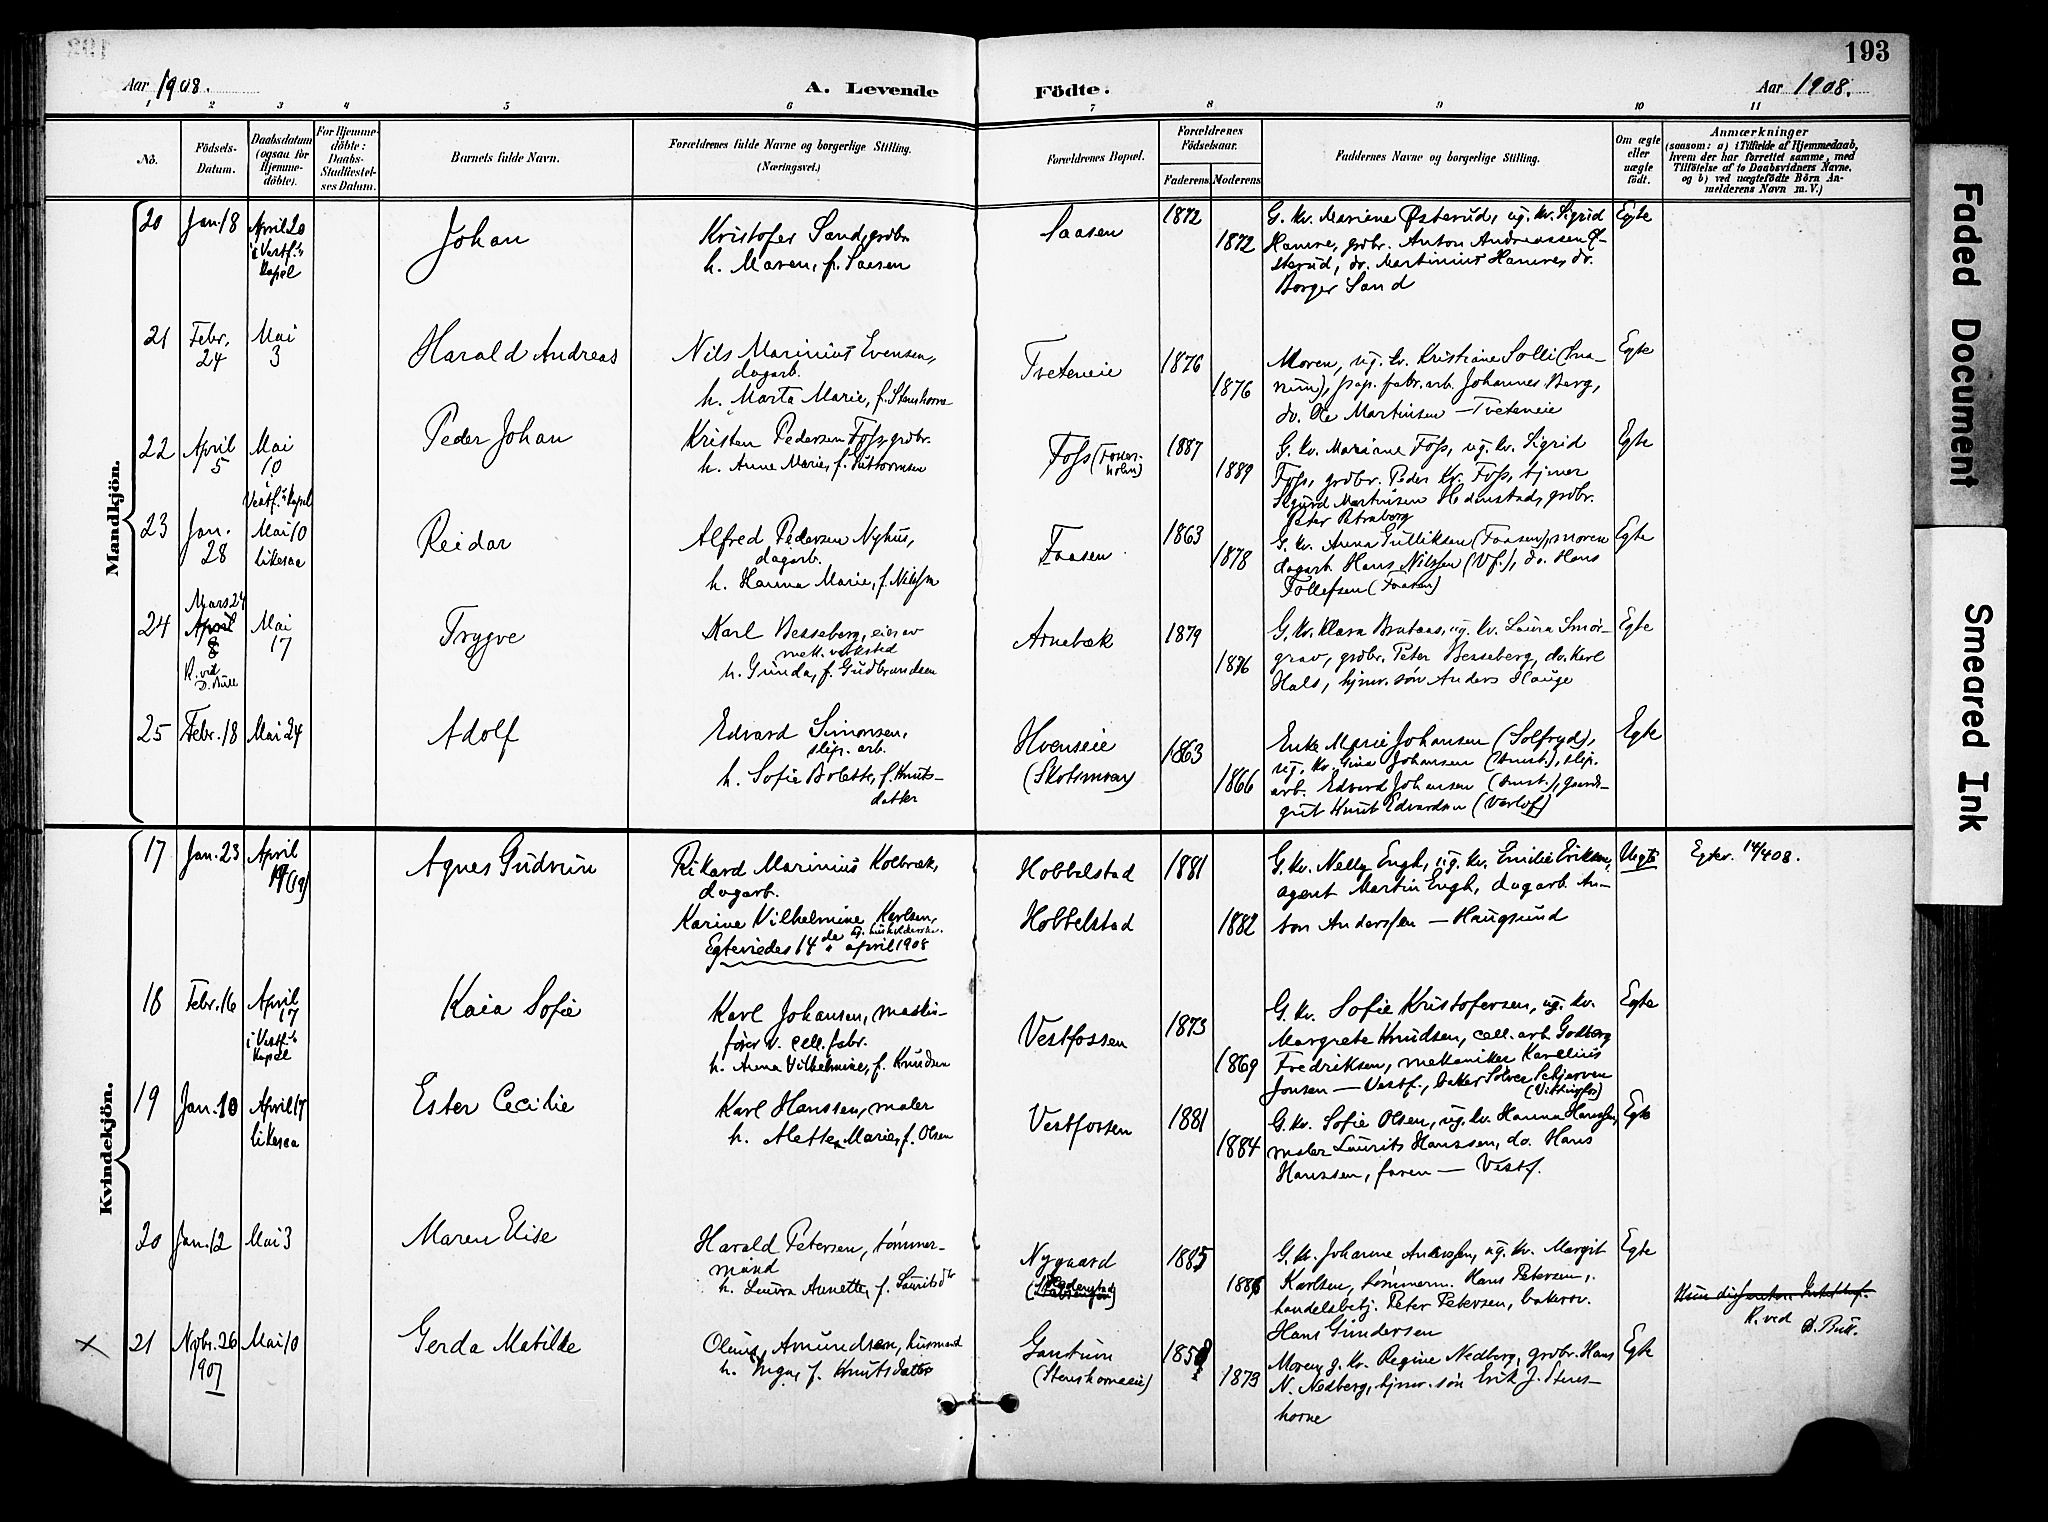 193
Aar 1908.
A. Levende Födte.
Aar 1908.
1 2 3 4 5 6 7 8 9 10 11
No.
Födsels-Datum.
Daabsdatum (ogsaa for Hjemme-döbte).
For Hjemme-döbte: Daabs-Stadfæstel-ses Datum.
Barnets fulde Navn.
Forældrenes fulde Navne og borgerlige Stilling.
(Næringsvei.)
Forældrenes Bopæl.
Forældrenes Födselsaar.
Faderens. Moderens.
Faddernes Navne og borgerlige Stilling.
Om ægte eller uægte födt.
Anmærkninger
(saasom: a) i Tilfælde af Hjemmedaab,
hvem der har forrettet samme, med
Tilföielse af to Daabsvidners Navne,
og b) ved uægtefödte Börn An-
melderens Navn m. V.)
Mandkjön.
20 Jan. 18 April 20 i Vestf.s Kapel
Johan
Kristofer Sand, grdbr.
h. Maren, f. Saasen
Saasen
1872
1872
G. kv. Mariene Østerud, ug. kv. Sigrid
Hamre, grdbr. Anton Andreassen Ø-
sterud, do. Martinius Hamre, do.
Borger Sand
Egte
21 Febr. 24 Mai 3
Harald Andreas
Nils Marinius Evensen,
dagarb.
h. Marta Marie, f. Stenshorne
Tveteneie
1876
1876
Moren, ug. kv. Kristiane Solli (Sna-
rum), pap. fabr. arb. Johannes Berg,
do. Ole Martinsen — Tveteneie
Egte
22 April 5 Mai 10 i Vestf.s Kapel
Peder Johan
Kristen Pedersen Foss, grdbr.
h. Anne Marie, f.
Foss
1887
1889
G. kv. Mariane Foss, ug. kv. Sigrid
Foss, grdbr. Peder Kr. Foss, tjener
Sigurd Martinsen Hedenstad, grdbr.
Peter
Egte
23 Jan. 28 Mai 10 likesaa
Reidar
Alfred Pedersen Nyhus,
dagarb.
h. Hanna Marie, f. Nilssen
Faasen
1863
1878
G. kv. Anna Gulliksen (Faasen), moren
dagarb. Hans Nilssen (Vf.), do. Hans
Tollefsen (Faasen)
Egte
24 Mars 24 April 8 Mai 17
R. ved D. Bull
Trygve
Karl Besseberg, eier av
mek. verksted
h. Gunda, f. Gudbrandsen
Arnebæk
1879
1876
G. kv. Klara Brataas, ug. kv. Laura Smør-
grav, grdbr. Peter Besseberg, do. Karl
Hals, hjmv. søn Anders Hauge
Egte
25 Febr. 18 Mai 24
Adolf
Edvard Simonsen,
slip. arb.
h. Sofie Bolette, f. Knuts-
datter
Hvenseie
(Skotsmoen)
1863
1866
Enke Marie Johansen (Solfryd),
ug. kv. Gina Johansen (Aust.), slip.
arb. Edvard Johansen (Aust.), gaards-
gut Knut Edvardsen (Varlof)
Egte
Kvindekjön.
17 Jan. 23 April 19 (19)
Agnes Gudrun
Rikard Marinius Kolbræk,
dagarb.
Karine Vilhelmine Karlsen,
ug. husholderske.
Egteviedes 14de april 1908
Hobbelstad
Hobbelstad
1881
1882
G. kv. Nelly Engh, ug. kv. Emilie Eriksen,
agent Martin Engh, dagarb. An-
ton Anderssen — Haugsund
Uegte
Egtev. 14/4 08.
18 Febr. 16 April 17 i Vestf.s Kapel
Kaia Sofie
Karl Johansen, maskin-
fører v. cell. fabr.
h. Anna Vilhelmine, f. Knudsen
Vestfossen
1873
1869
G. kv. Sofie Kristofersen, ug. kv.
Margrete Knudsen, cell. arb. Godberg
Fredriksen, mekaniker Karelius
Jonsen — Vestf., baker Sølver Schjerven
Egte
19 Jan. 10 April 17 likesaa
Ester Cecilie
Karl Hanssen, maler
h. Alette Marie, f. Olsen
Vestfossen
1881
1884
G. kv. Sofie Olsen, ug. kv. Hanna Hanssen,
maler Laurits Hanssen, do. Hans
Hanssen, faren — Vestf.
Egte
20 Jan. 12 Mai 3
Maren Elise
Harald Petersen, tømmer-
mand
h. Laura Annette, f. Lauritsdtr
Nygaard
1885
1886
G. kv. Johanne Anderssen, ug. kv. Margit
Karlsen, tømmerm. Hans Petersen,
handelsbetj. Peter Petersen, bakersv.
Hans Gundersen
Egte
R. ved D. Bull.
× 21 Novbr. 26 1907 Mai 10
Gerda Matilde
Olaus Amundsen, husmand
h. Inga, f. Knutsdatter
Gunstun
(Stenshorneeie)
1858
1873
Moren, g. kv. Regine Nedberg, grdbr. Hans
N. Nedberg, hjmv. søn Erik J. Stens-
horne
Egte
Faded Document
Smeared Ink